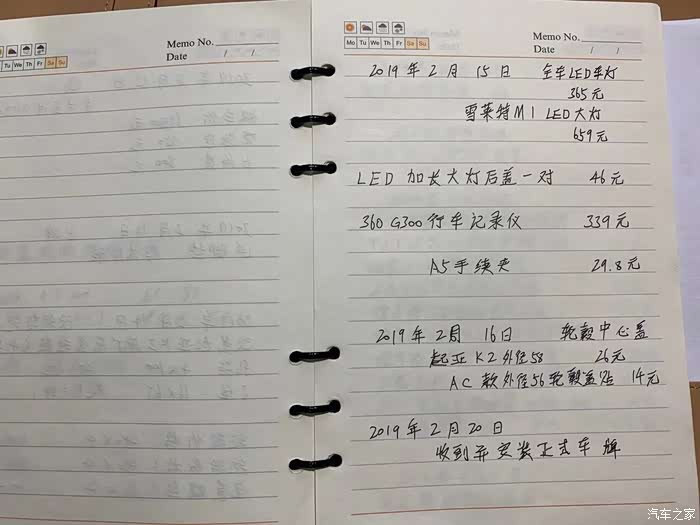 Tu We Th Fr Sa Su
Memo No.
Date / /
Mo Tu We Th Fr Sa Su
Memo No.
Date / /
2019年2月15日 全车LED车灯
365元
雪莱特M1 LED大灯
659元
LED 加长大灯后盖一对 46元
360 G300行车记录仪 339元
A5手续夹 29.8元
2019年2月16日 轮毂中心盖
起亚K2外径58 26元
AC款外径56轮毂盖贴 14元
2019年2月20日
收到并安装正式车牌
汽车之家